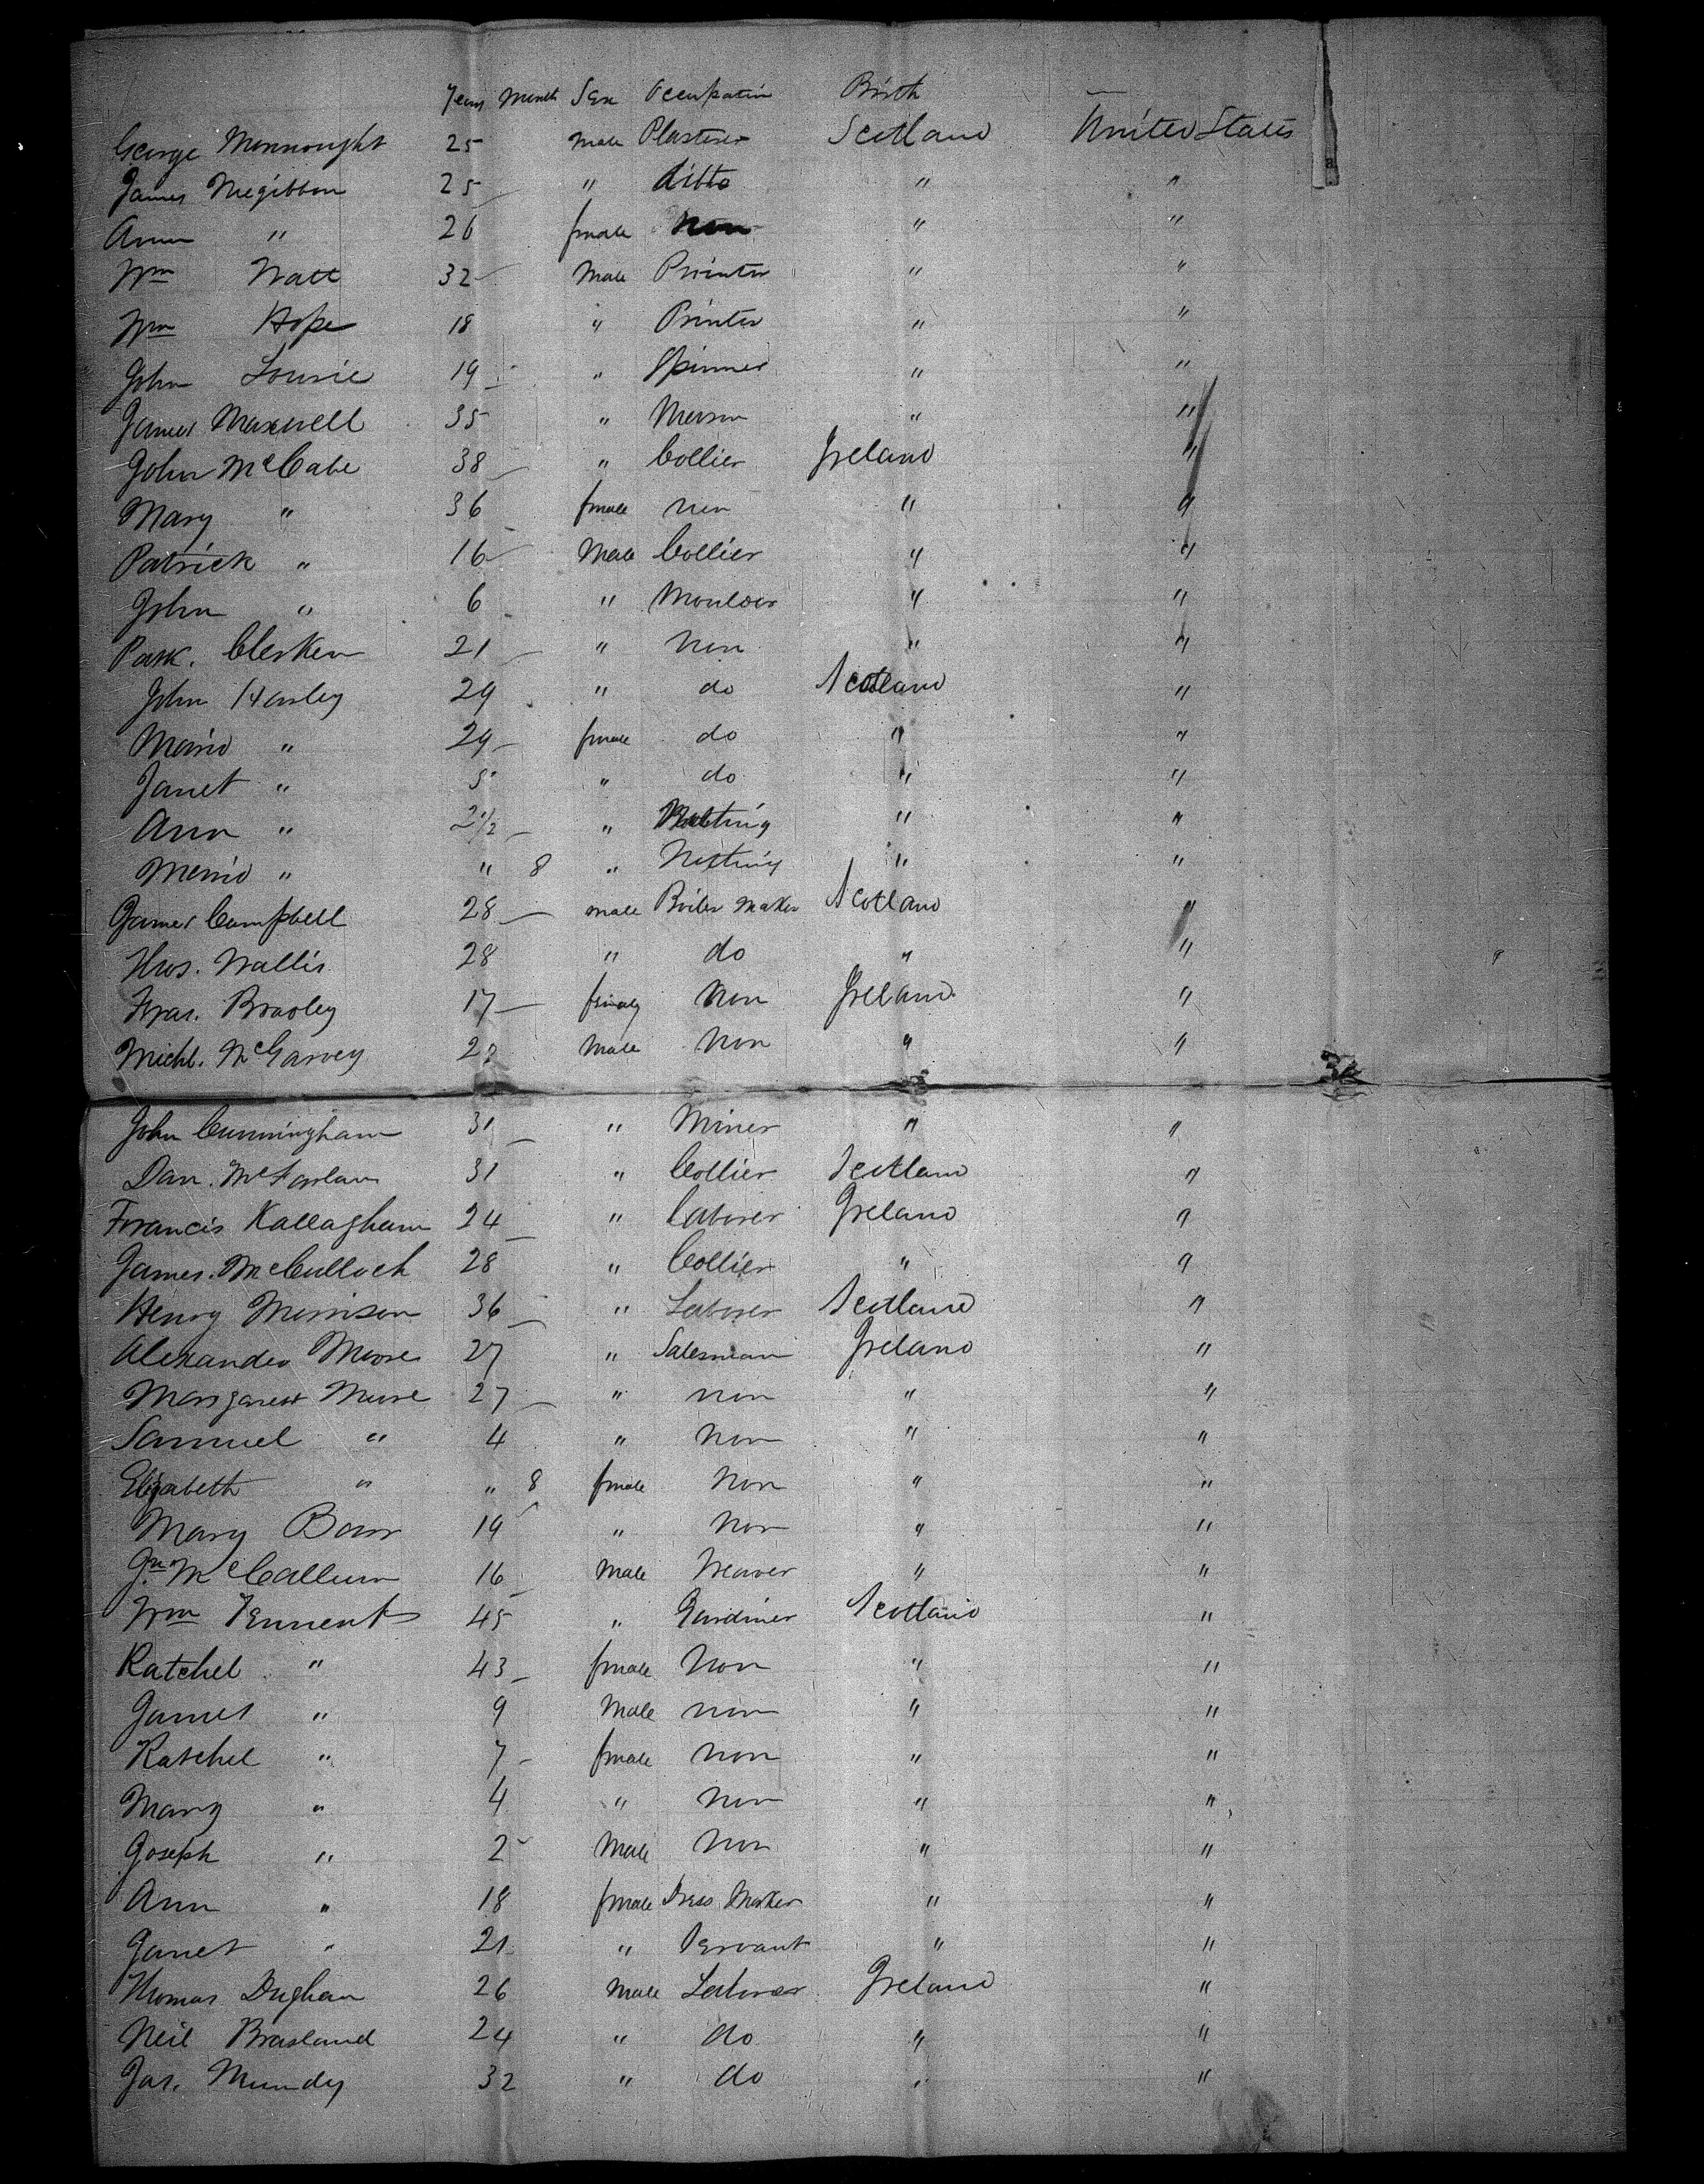 Years Month Sex Occupation Birth
George Monnought 25 male Plasterer Scotland United States
James Megibbon 25 " ditto " "
Ann " 26 female Non " "
Wm Watt 32 Male Printer " "
Wm Hope 18 " Printer " "
John Lourie 19 " Spinner " "
James Maxwell 35 " Mason " "
John McCabe 38 " Collier Ireland "
Mary " 36 female non " "
Patrick " 16 Male Collier " "
John " 6 " Moulder " "
Patk. Clerken 21 " Non " "
John Hanley 29 " do Scotland "
" 29 female do " "
Janet " 5 " do " "
Ann " 2 1/2 " " "
" " 8 " Nothing " "
James Campbell 28 male Boiler Maker Scotland "
Thos. Wallis 28 " do " "
Fras. Bradley 17 Non Ireland "
Michl. McGarvey Male Non " "
John Cunningham 31 " Miner " "
Dan. McFarlan 31 " Collier Scotland "
Francis Kallagham 24 " Laborer Ireland "
James. McCulloch 28 " Collier " "
Henry Morrison 36 " Laborer Scotland "
Alexander Moore 27 " Salesman Ireland "
Margarett Moore 27 " non " "
Samuel " 4 " Non " "
Elizabeth " " 8 female Non " "
Mary Barr 19 " Non " "
Jn. McCallum 16 Male Weaver " "
Wm Tennent 45 " Gardiner Scotland "
Ratchel " 43 female Non " "
James " 9 Male non " "
Ratchel " 7 female non " "
Mary " 4 " non " "
Joseph " 2 Male Non " "
Ann " 18 female Dress Marker " "
Janet " 21 " Servant " "
Thomas Dughan 26 Male Laborer Ireland "
Neil Brasland 24 " do " "
Jas. Mundy 32 " do " "